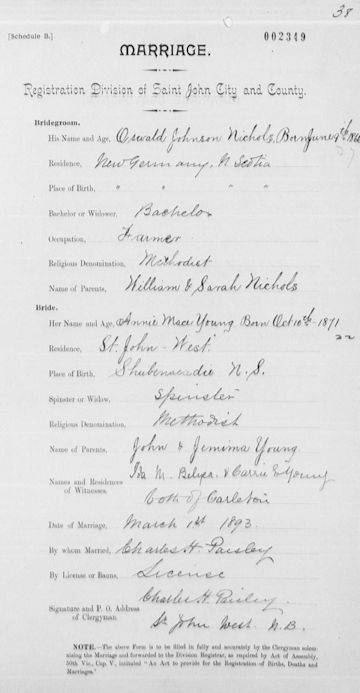 38
[Schedule B.]
002349
MARRIAGE.
Registration Division of Saint John City and County.
Bridegroom.
His Name and Age, Oswald Johnson Nichols, Born June 9th
27
Residence, New Germany, N Scotia
Place of Birth, " " " "
Bachelor or Widower, Bachelor
Occupation, Farmer
Religious Denomination, Methodist
Name of Parents, William & Sarah Nichols
Bride.
Her Name and Age, Annie Mace Young Born Oct 10th - 1871
22
Residence, St. John - West
Place of Birth, Shubenacadie N.S.
Spinster or Widow, Spinster
Religious Denomination, Methodist
Name of Parents, John & Jemima Young
Names and Residences of Witnesses, Ida M. & Carrie E Young
both of Carleton
Date of Marriage, March 1st 1893.
By whom Married, Charles H. Paisley
By License or Banns, License
Charles H. Paisley
Signature and P. O. Address of Clergyman. St John West N.B.
NOTE.—The above Form is to be filled in fully and accurately by the Clergyman solem-
nizing the Marriage and forwarded to the Division Registrar, as required by Act of Assembly,
50th Vic., Cap. V., intituled "An Act to provide for the Registration of Births, Deaths and
Marriages."